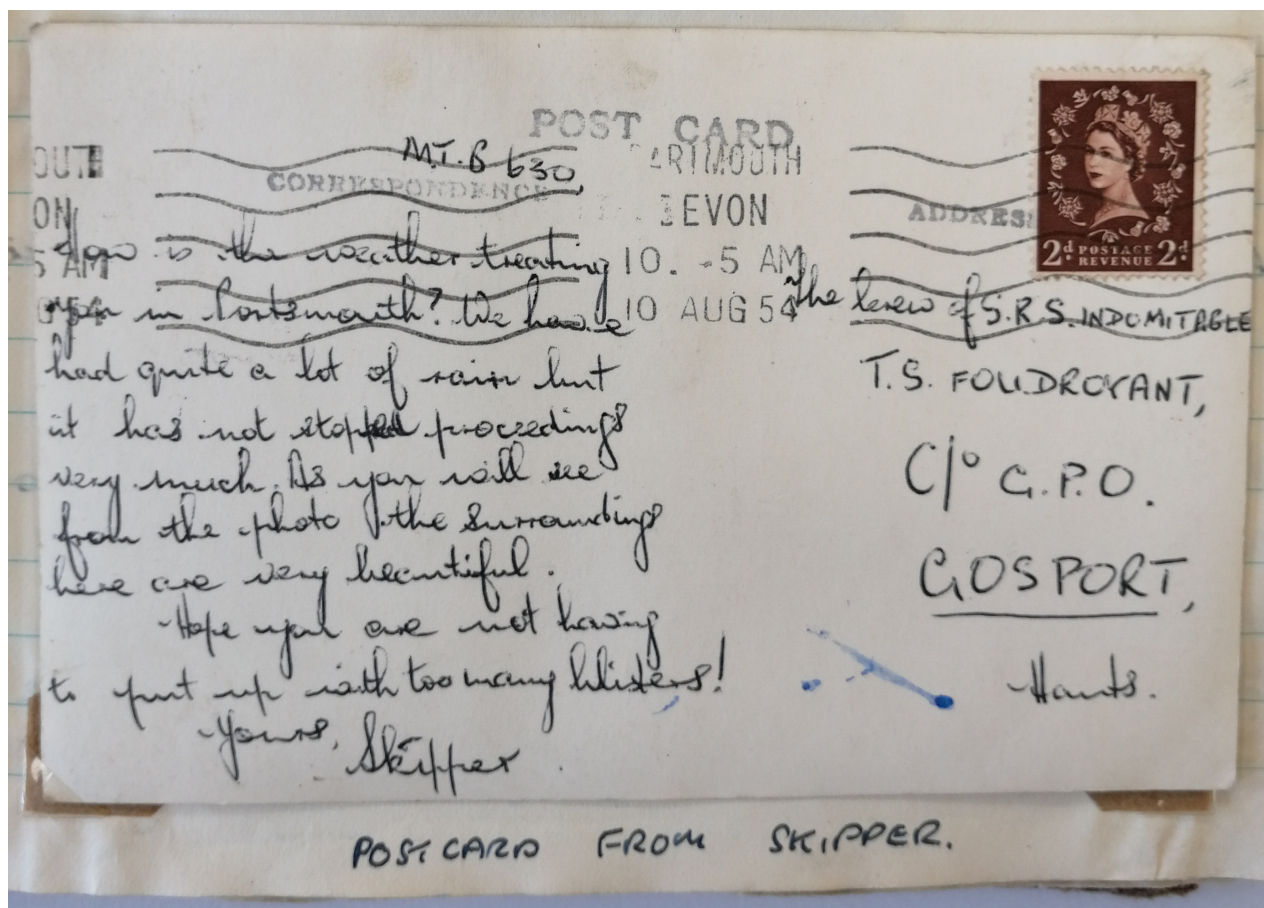 POST CARD
M.T.B 630,
CORRESPONDENCE
ADDRESS
OUTH
ON
5 AM
DARTMOUTH
DEVON
10. -5 AM
10 AUG 54
2d POSTAGE REVENUE 2d
How is the weather treating
you in Portsmouth? We have
had quite a lot of rain but
it has not stopped proceedings
very much. As you will see
from the photo the surroundings
here are very beautiful.
Hope you are not having
to put up with too many blisters!
Yours,
Skipper
The Crew of S.R.S. INDOMITABLE
T.S. FOUDROYANT,
C/o G.P.O.
GOSPORT,
Hants.
POSTCARD FROM SKIPPER.